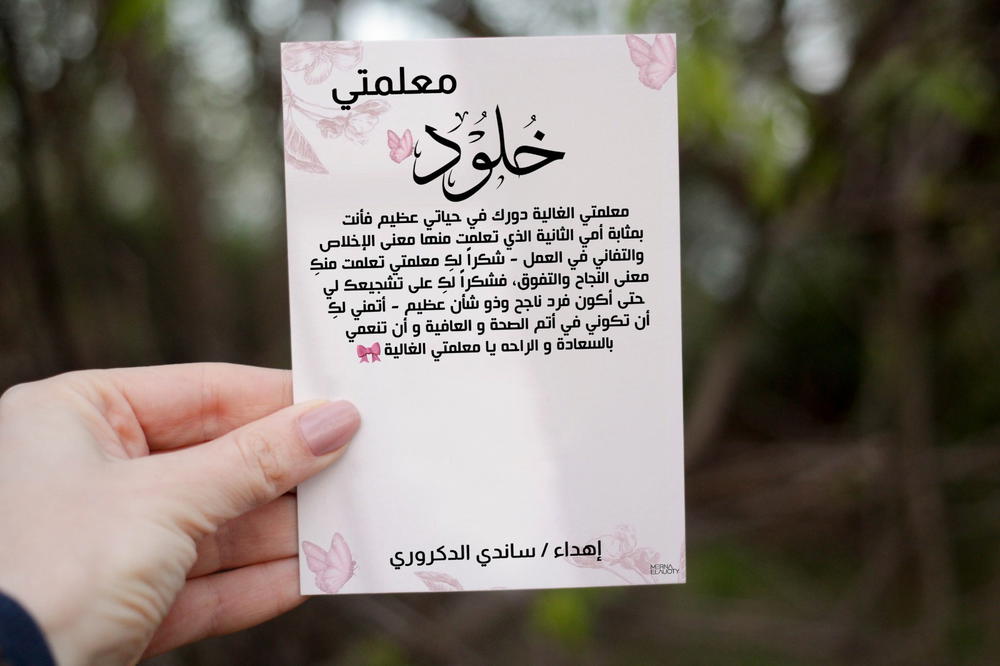 معلمتي
خُلُود
معلمتي الغالية دورك في حياتي عظيم فأنت
بمثابة أمي الثانية الذي تعلمت منها معنى الإخلاص
والتفاني في العمل - شكراً لكِ معلمتي تعلمت منكِ
معنى النجاح والتفوق، فشكراً لكِ على تشجيعك لي
حتى أكون فرد ناجح وذو شأن عظيم - أتمني لكِ
أن تكوني في أتم الصحة و العافية و أن تنعمي
بالسعادة و الراحه يا معلمتي الغالية
إهداء / ساندي الدكروري